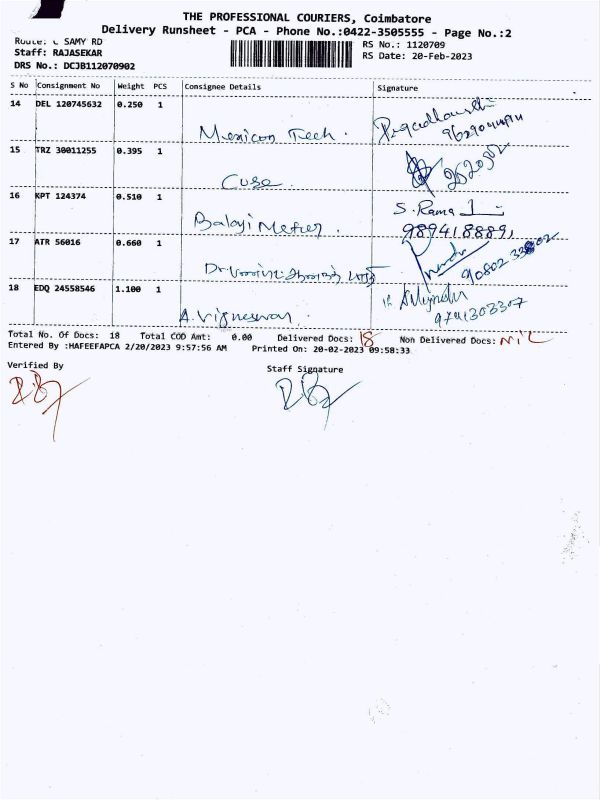 THE PROFESSIONAL COURIERS, Coimbatore
Delivery Runsheet - PCA - Phone No.:0422-3505555 - Page No.:2
Route: C SAMY RD
Staff: RAJASEKAR
DRS No.: DCJB112070902
RS No.: 1120709
RS Date: 20-Feb-2023
S No Consignment No Weight PCS Consignee Details Signature
14 DEL 120745632 0.250 1
Mexicon Tech.
15 TRZ 30011255 0.395 1
16 KPT 124374 0.510 1 S. Rama
Balaji 9894188891
17 ATR 56016 0.660 1
Dr.
18 EDQ 24558546 1.100 1
A. Vigneswar. 9791303307
Total No. Of Docs: 18 Total COD Amt: 0.00 Delivered Docs: 18 Non Delivered Docs: NIL
Entered By :HAFEEFAPCA 2/20/2023 9:57:56 AM Printed On: 20-02-2023 09:58:33
Verified By Staff Signature